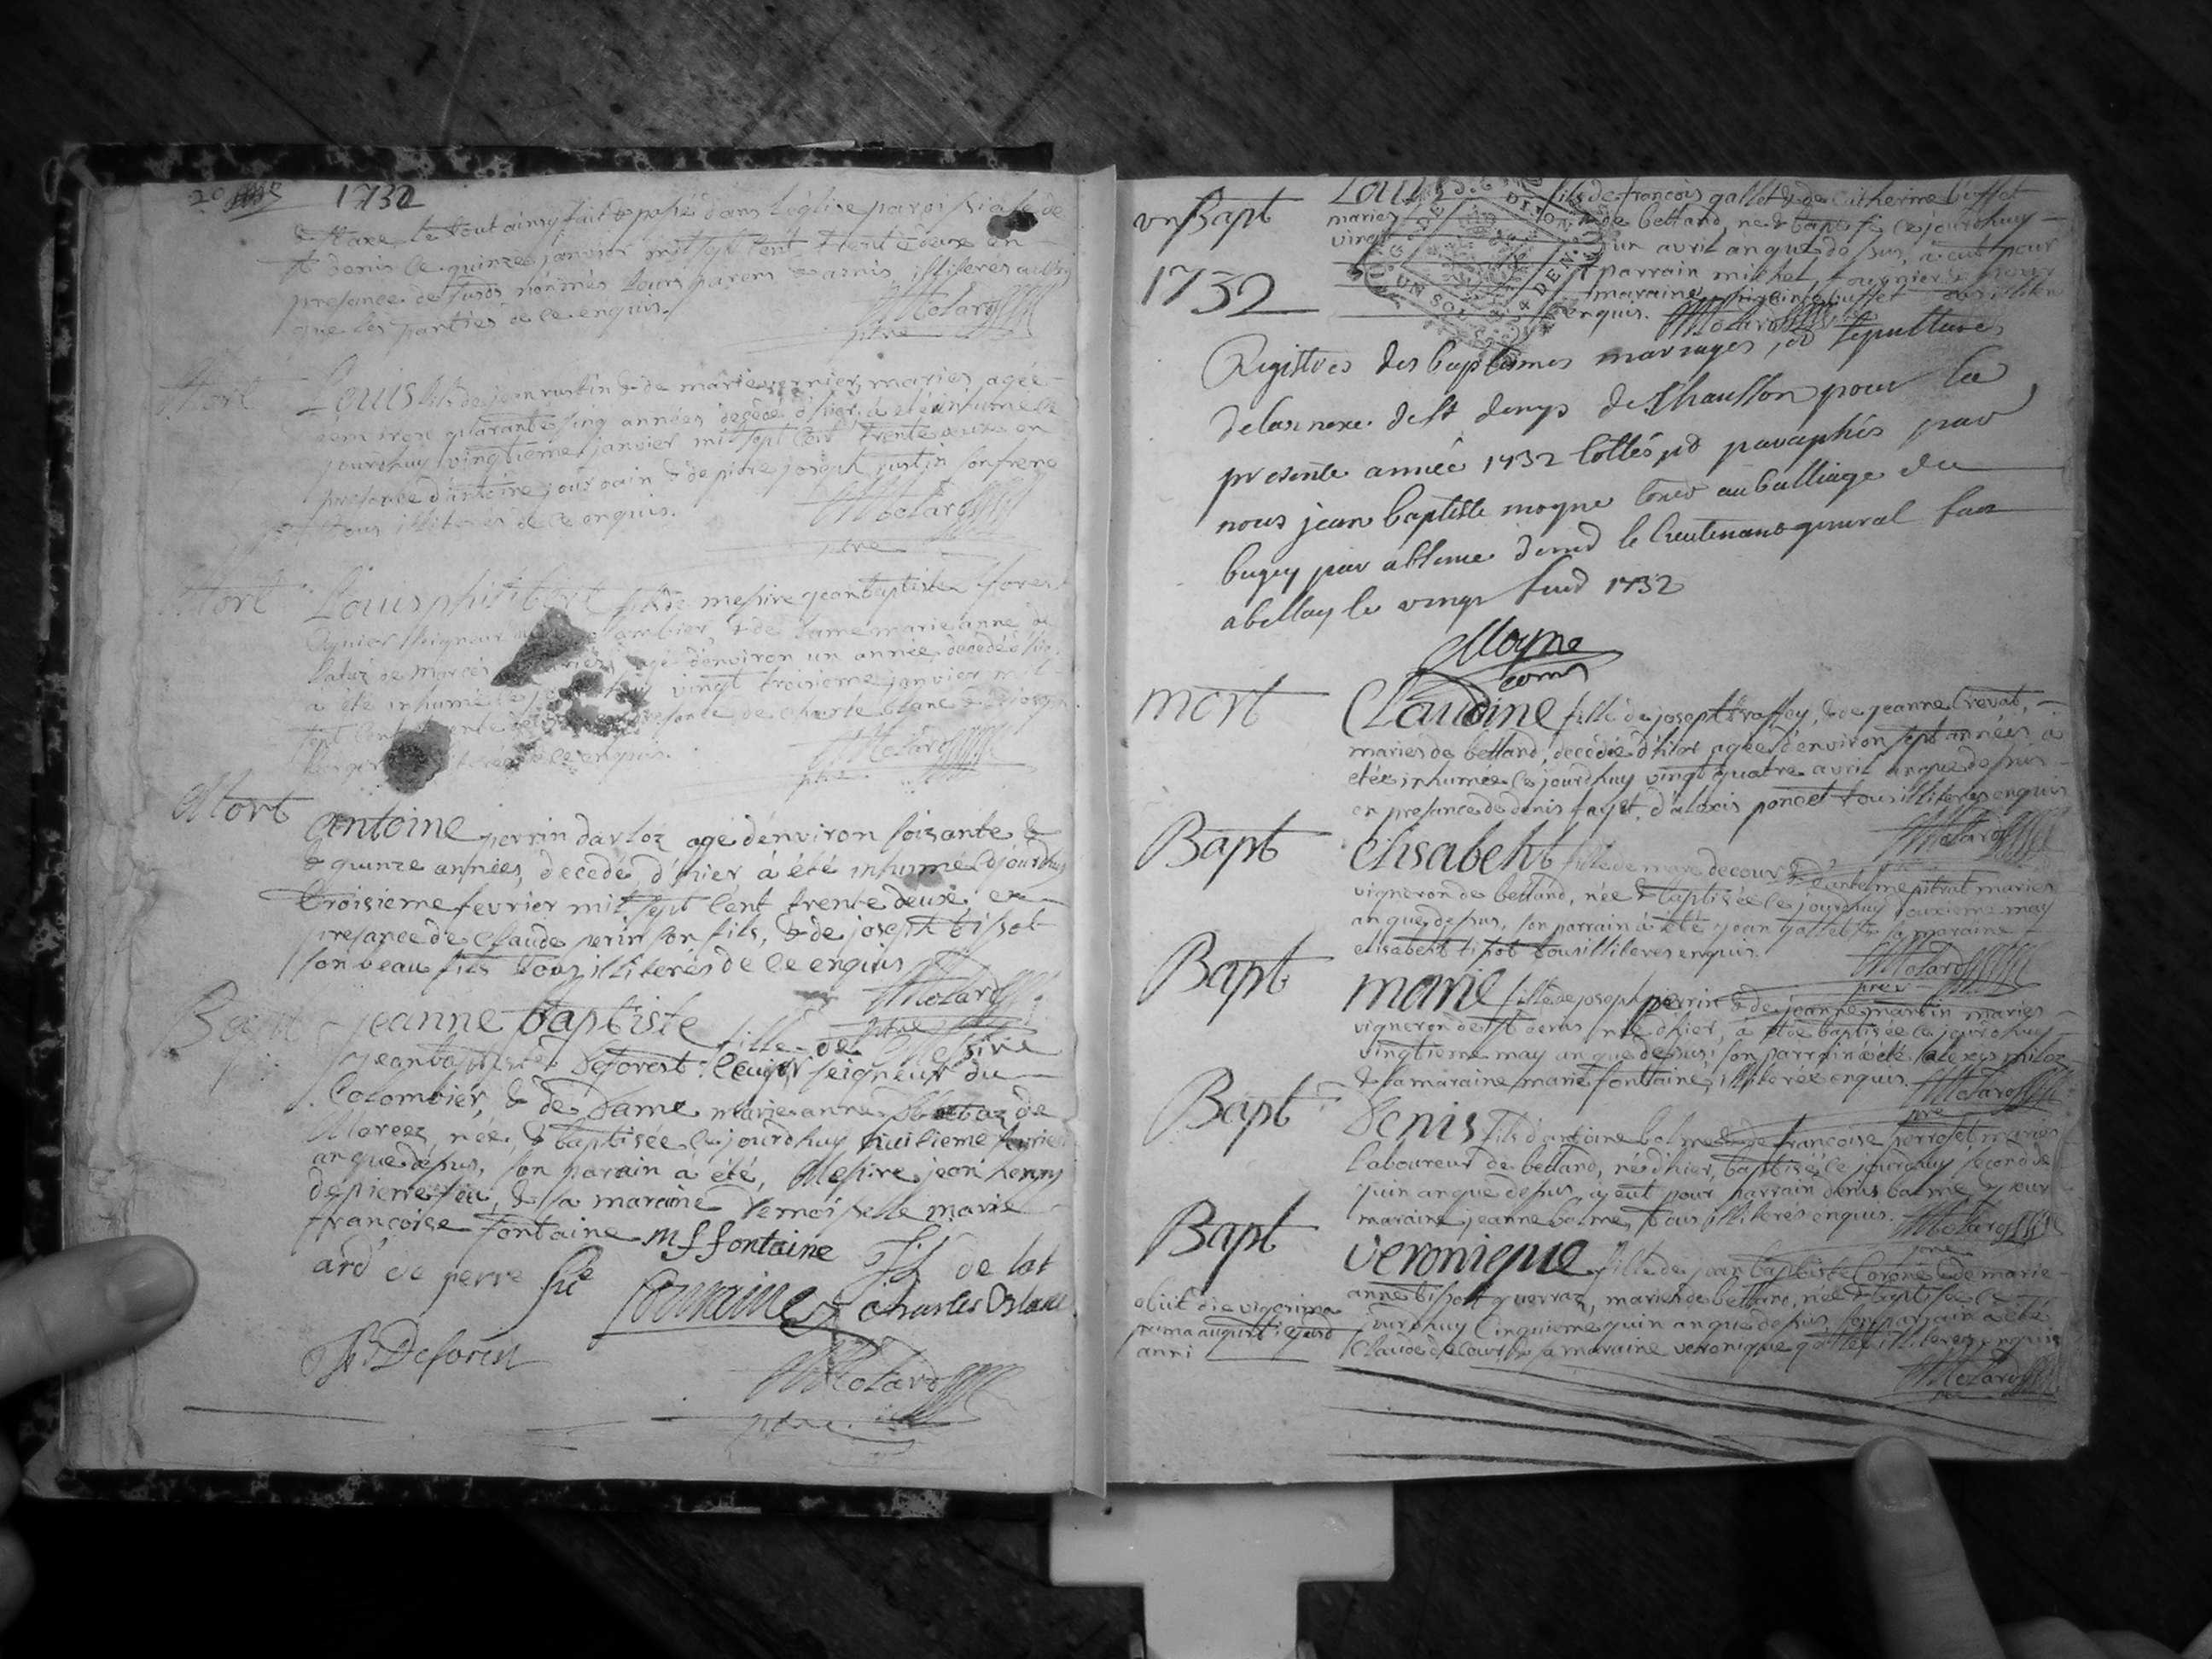 1732
& Maxe, le tout ainsy fait & passé dans l'église paroissiale de
st denis ce quinze janvier mil sept cent trent deux en
presance de susds nommés leurs parens & amis illiteres
que les parties de ce enquis.
Molard
ptre
Mort
Louis fils de jean rustin & de marie vernier, maries, agée
quarante sing années decedé d'hier, à été inhumé ce
jourdhuy vingtieme janvier mil sept cent trente deux en
presance d'antoine jourdain & de piere joseph rustin son frere
tous illiteres de ce enquis.
Molard
ptre
Mort
Louis philibert fils de messire jean baptiste
seigneur du colombier, & de dame marie anne de
de Marcez agé d'environ un année, decedé d'hier
a été inhumé ce vingt troisieme janvier mil
sept cent presance de charle blanc & de joseph
enquis.
Molard
ptre
Mort
antoine perrin d'arloz agé d'environ soisante &
& quinze années, decedé d'hier à été inhumé ce jourdhuy
troisieme fevrier mil sept cent trente deux en
presance de Claude perin son fils, & de joseph tissot
son beau fils tous illiteres de ce enquis
Molard
ptre
Bapt
jeanne baptiste fille de Messire
jean baptiste Deforest seigneur du
Colombier, & de Dame marie anne de
Marcez, née, & baptisée ce jourdhuy huitieme fevrier
an que dessus, son parain à été, Messire jean
de pierre & sa maraine Demoiselle marie
françoise fontaine m f fontaine de lat
fontaine Charles Blanc
Deforest
Molard
ptre
Bapt
Louis fils de francois gallet & de Catherine buffet
maries de bettand, né & baptisé ce jourdhuy
vingt un avril an que dessus, à eut pour
1732
parrain michel & pour
maraine buffet
enquis. Molard
UN SOL DEN.
Registres des baptemes mariages, et sepultures
de l'annexe de st denys de Chausson pour la
presente année 1732 cottés et paraphés par
nous jean baptiste moyne coner au bailliage du
bugey par absence de mr le lieutenant general fait
a bellay le vingt 1732
Moyne
mort
Claudine fille de joseph raffey, & de jeanne Crevat,
mariés de bettand, decedée d'hier agée d'environ sept années, à
etée inhumée ce jourdhuy vingt quatre avril an que dessus
en presance de denis fayet, d'alexis poncet tous illiteres enquis
Molard
Bapt
élisabeht fille de marc decour & d'antelme pitrat maries
vigneron de bettand, née & baptisée ce jourdhuy douxieme may
an que dessus, son parrain à été jean gallet & sa maraine
elisabeht tissot tous illiteres enquis.
Molard
Bapt
marie fille de joseph perrin & de jeanne martin maries
vigneron de st denis née d'hier, à etée baptisée ce jourdhuy
vingtieme may an que dessus, son parrain à été alexis miloz
& sa maraine marie fonttaine, illiteres enquis.
Molard
Bapt
Denis fils d'antoine balme & de françoise perroset maries
laboureur de bettand, né d'hier, baptisé ce jourdhuy second de
juin an que dessus, à eut pour parrain denis balme & pour
maraine jeanne balme, tous illiteres enquis.
Molard
Bapt
veronique fille de jean baptiste & de marie
anne tissot guerraz, maries de bettand, née & baptisée ce
obiit die vigesima
jourdhuy Cinquieme juin an que dessus, son parrain à été
prima augusti ejusd
Claude decour & sa maraine veronique gallet illiteres enquis
anni
Molard